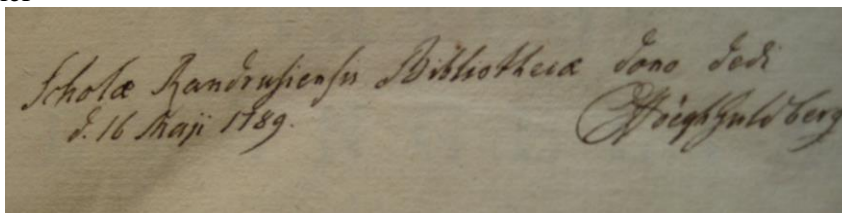 Scholæ Randrusiensis Bibliothecæ dono dedi
d. 16 Maji 1789.
OHöegh Guldberg